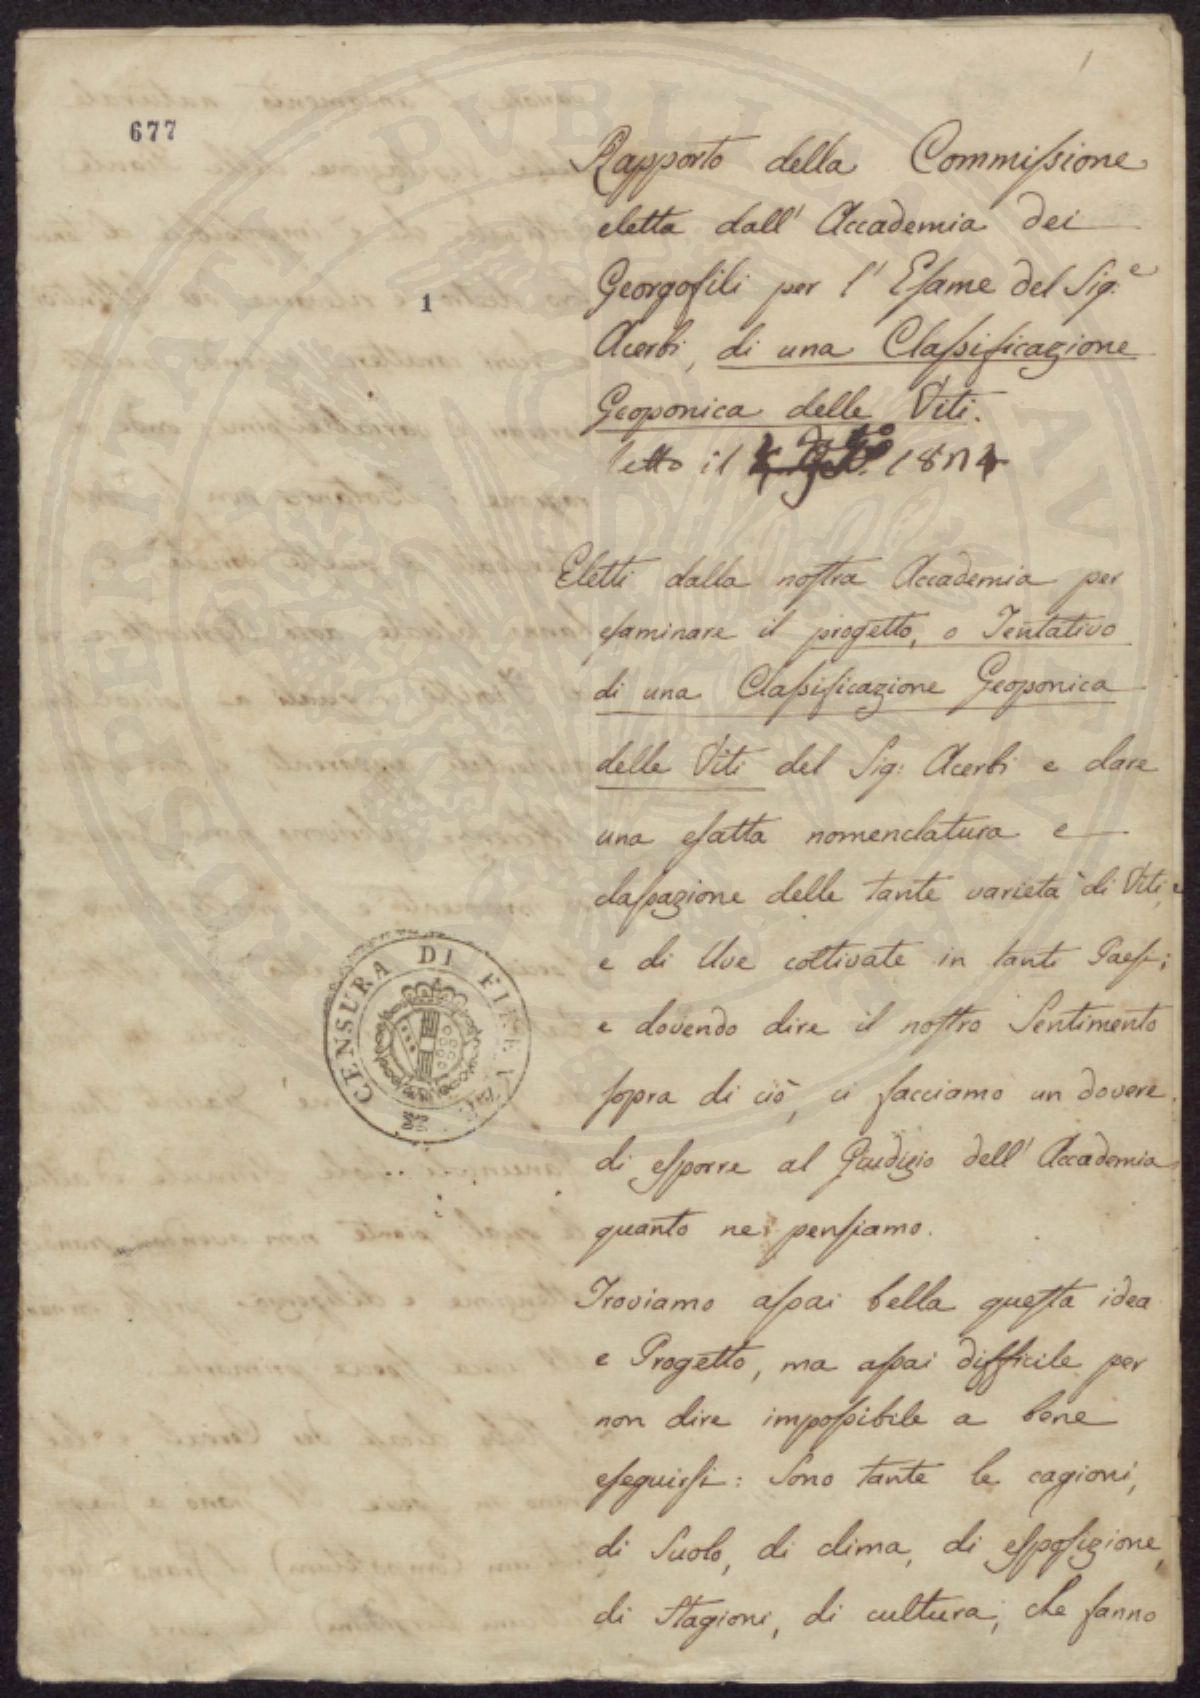 1
677
1
Rapporto della Commiſsione
eletta dall' Accademia dei
Georgofili per l' Eſame del Sig.e
Acerbi, di una Claſsificazione
Geoponica delle Viti.
letto il 182
Eletti dalla noſtra Accademia per
eſaminare il progetto, o Tentativo
di una Claſsificazione Geoponica
delle Viti del Sig: Acerbi e dare
una eſatta nomenclatura e
claſsazione delle tante varietà di Viti,
e di Uve coltivate in tanti Paeſi;
e dovendo dire il noſtro Sentimento
ſopra di ciò, ci facciamo un dovere
di eſporre al Giudizio dell' Accademia
quanto ne penſiamo.
Troviamo aſsai bella queſta idea
e Progetto, ma aſsai difficile per
non dire impoſsibile a bene
eſeguirſi: Sono tante le cagioni,
di Suolo, di clima, di eſpoſizione,
di Stagioni, di cultura, che fanno
CENSURA DI FIRENZE